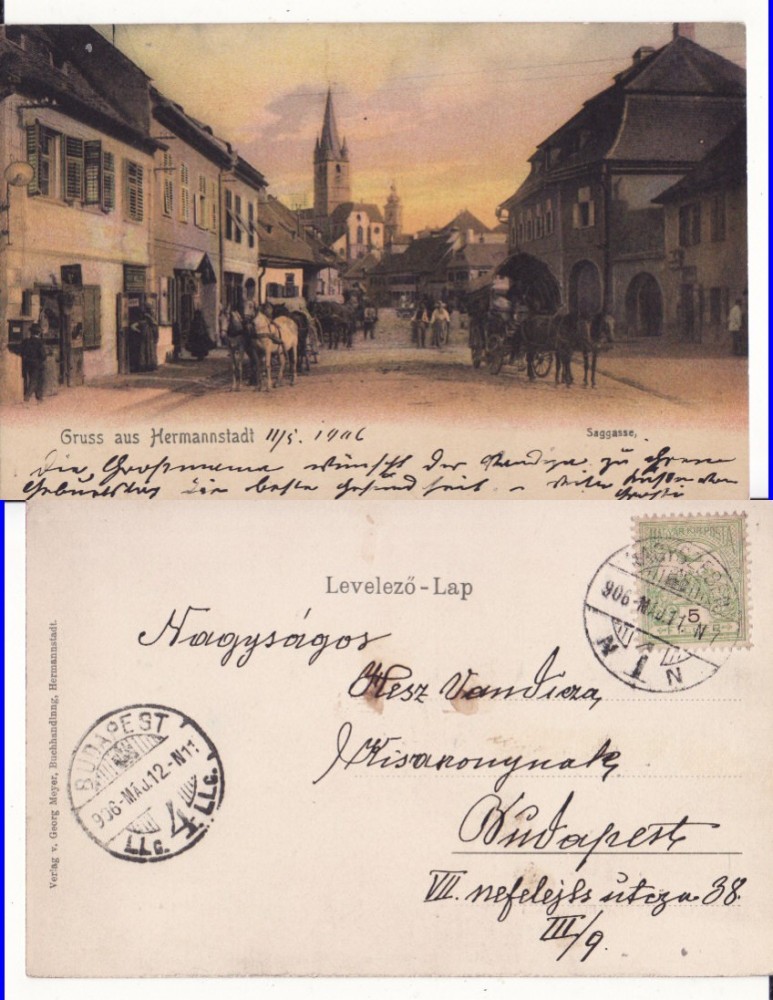 Gruss aus Hermannstadt 11/5. 1906
Saggasse,
Die Grossmama wünscht der Vandiza zu ihrem
Geburtstag die beste Gesundheit
Levelező-Lap
MAGYAR KIR. POSTA
5
NAGYSZEBEN
906-MÁJ.11.N7
N 1 N
Nagyságos
Hesz Vandiza
Kisasonynak
Budapest
VII. nefelejts utcza 38.
III/9.
BUDAPEST
906-MÁJ.12-N11
4
LLG. LLG.
Verlag v. Georg Meyer, Buchhandlung, Hermannstadt.